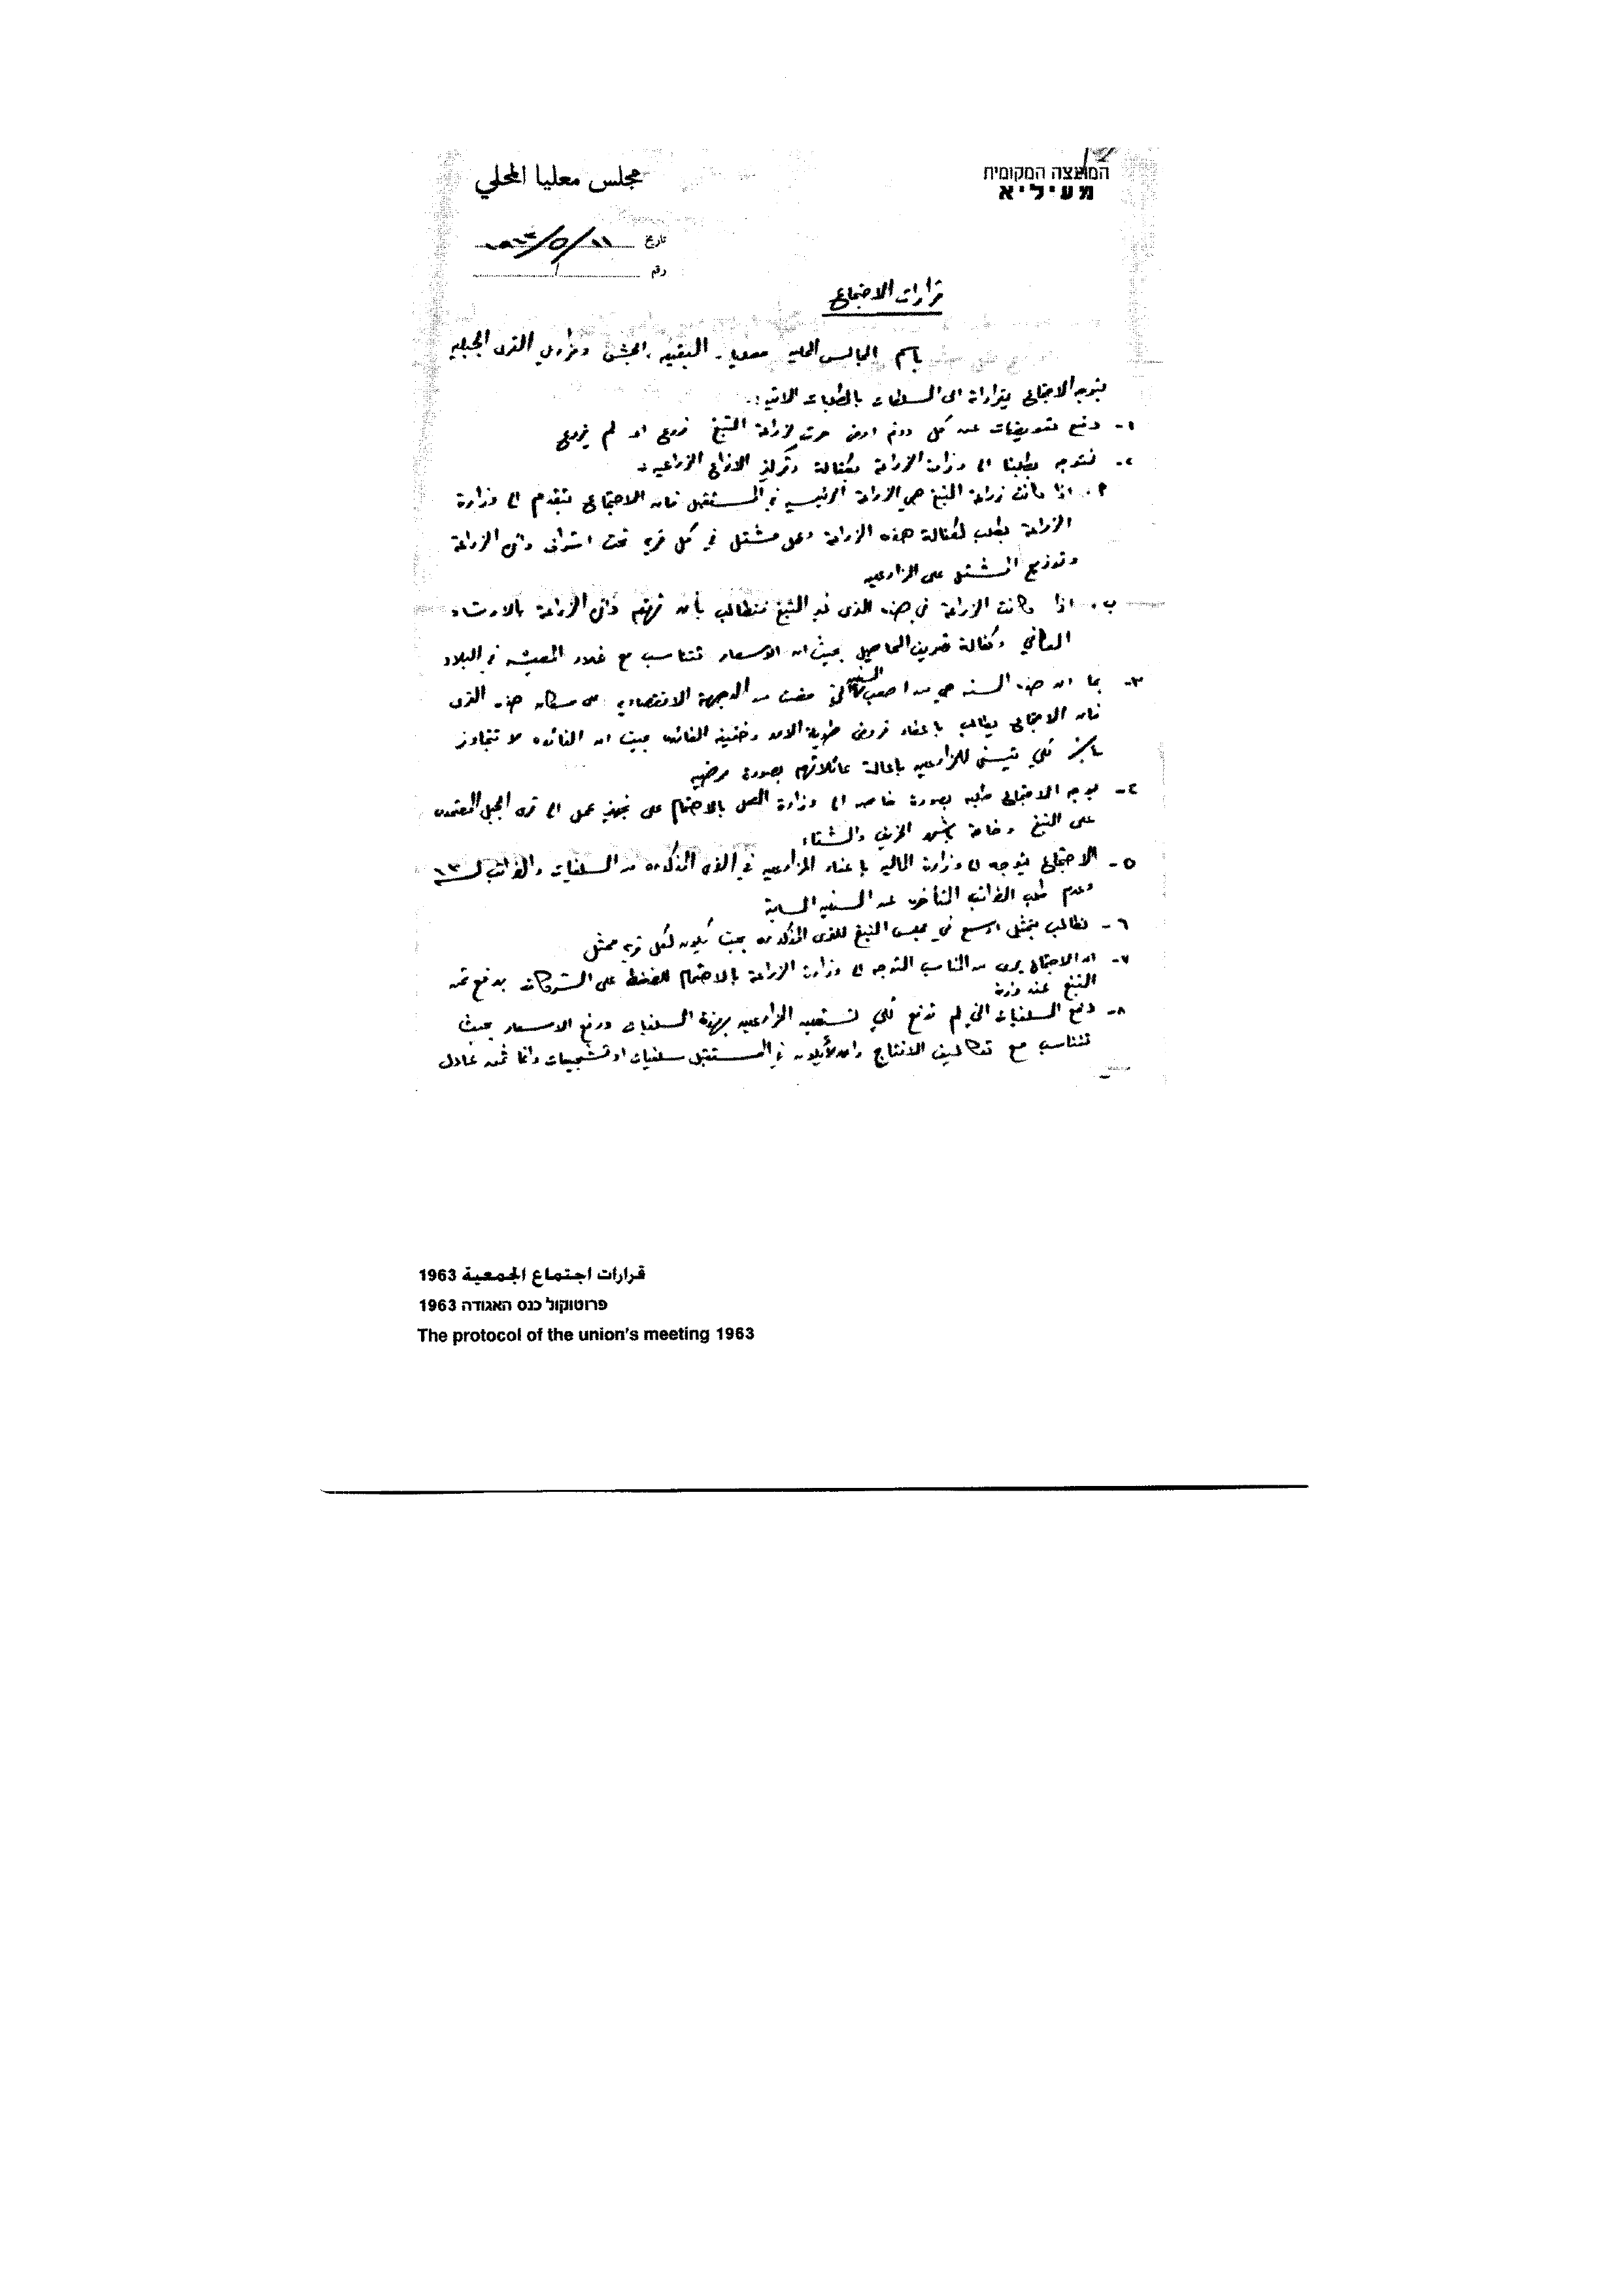 המועצה המקומית
מעיליא
مجلس معليا المحلي
تاريخ ١١/٥/١٩٦٣
رقم
قرارات الاجتماع
باسم المجالس المحليه معليا، البقيعه، الجش ومزارعي القرى الجبليه
يتوجه الاجتماع بقراراته الى السلطات بالطلبات الاتيه:
١- دفع تعويضات عن كل دونم ارض حرث لزراعة التبغ زرع او لم يزرع
٢- نتوجه بطلبنا الى وزارة الزراعة بكفالة وتركيز الانواع الزراعيه
أ. اذا كانت زراعة التبغ هي الزراعة الرئيسيه في المستقبل فان الاجتماع يتقدم الى وزارة
الزراعة بطلب لكفالة هذه الزراعة وعمل مشتل في كل قريه تحت اشراف دائرة الزراعة
وتوزيع المشتل على المزارعين
ب. اذا كانت الزراعة في هذه القرى غير التبغ فنطالب بأن تهتم دائرة الزراعة بالارشاد
الكافي وكفالة تصريف المحاصيل بحيث ان الاسعار تتناسب مع غلاء المعيشه في البلاد
٣- بما ان هذه السنه هي من اصعب السنين التي مضت من الوجهة الاقتصاديه على سكان هذه القرى
فان الاجتماع يطالب باعطاء قروض طويلة الامد وخفيفة الفائده بحيث ان الفائده لا تتجاوز
لكي يتسنى للمزارعين باعالة عائلاتهم بصورة مرضيه
٤- يوجه الاجتماع طلبه بصورة خاصه الى وزارة العمل بالاهتمام على تجهيز عمل الى قرى الجبل المعتمده
على التبغ وخاصة باشهر الخريف والشتاء
٥- الاجتماع يتوجه الى وزارة الماليه باعفاء المزارعين في القرى المذكوره من السلفيات والضرائب لسنة ٦٣
وعدم طلب الضرائب المتأخره عن السنين السابقة
٦- نطالب بتمثيل اوسع في مجلس التبغ للقرى المذكوره بحيث يكون لكل قريه ممثل
٧- ان الاجتماع يرى من المناسب التوجه الى وزارة الزراعة بالاهتمام للضغط على الشركات بدفع ثمن
التبغ عند وزنه
٨- دفع السلفيات التي لم تدفع لكي نستعين المزارعين بهذه السلفيات ورفع الاسعار بحيث
تتناسب مع تكاليف الانتاج وان لا يكون في المستقبل سلفيات او تشجيعات وانما ثمن عادل
قرارات اجتماع الجمعية 1963
פרוטוקול כנס האגודה 1963
The protocol of the union's meeting 1963